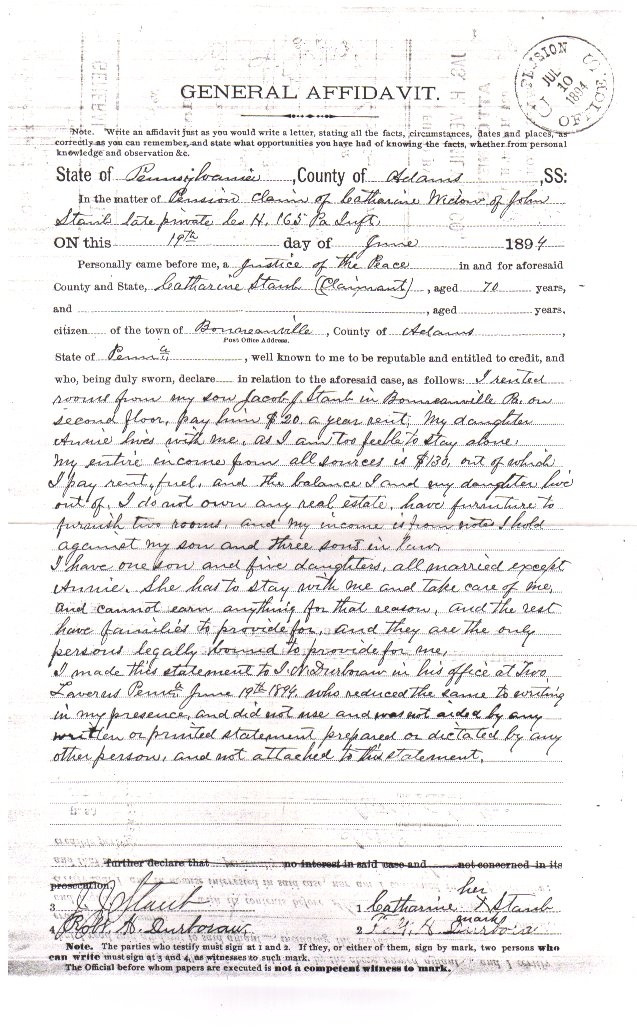 PENSION OFFICE
U S
JUL
10
1894
GENERAL AFFIDAVIT.
Note. Write an affidavit just as you would write a letter, stating all the facts, circumstances, dates and places, as
correctly as you can remember, and state what opportunities you have had of knowing the facts, whether from personal
knowledge and observation &c.
State of Pennsylvania, County of Adams, SS:
In the matter of Pension Claim of Catharine Widow of John
Staub late private Co H. 165 Pa Inft.
ON this 19th day of June 1894
Personally came before me, a Justice of the Peace in and for aforesaid
County and State, Catharine Staub (Claimant), aged 70 years,
and , aged years,
citizen of the town of Bonneauville, County of Adams,
Post Office Address.
State of Penna, well known to me to be reputable and entitled to credit, and
who, being duly sworn, declare in relation to the aforesaid case, as follows: I rented
rooms from my son Jacob J. Staub in Bonneauville Pa. on
second floor, pay him $20. a year rent, My daughter
Annie lives with me, as I am too feeble to stay alone.
My entire income from all sources is $130, out of which
I pay rent, fuel, and the balance I and my daughter live
out of. I do not own any real estate, have furniture to
furnish two rooms, and my income is from notes I hold
against my son and three sons in law.
I have one son and five daughters, all married except
Annie. She has to stay with me and take care of me,
and cannot earn anything for that reason, and the rest
have families to provide for, and they are the only
persons legally bound to provide for me,
I made this statement to I. N. Durboraw in his office at Two
Taverns Penna June 19th 1894. who reduced the same to writing
in my presence, and did not use and was not aided by any
written or printed statement prepared or dictated by any
other person, and not attached to this statement.
further declare that no interest in said case and not concerned in its
prosecution.
her
3 J. J. Staub 1 Catharine X Staub
mark
4 Robt. H. Durboraw 2
Note. The parties who testify must sign at 1 and 2. If they, or either of them, sign by mark, two persons who
can write must sign at 3 and 4, as witnesses to such mark.
The Official before whom papers are executed is not a competent witness to mark.